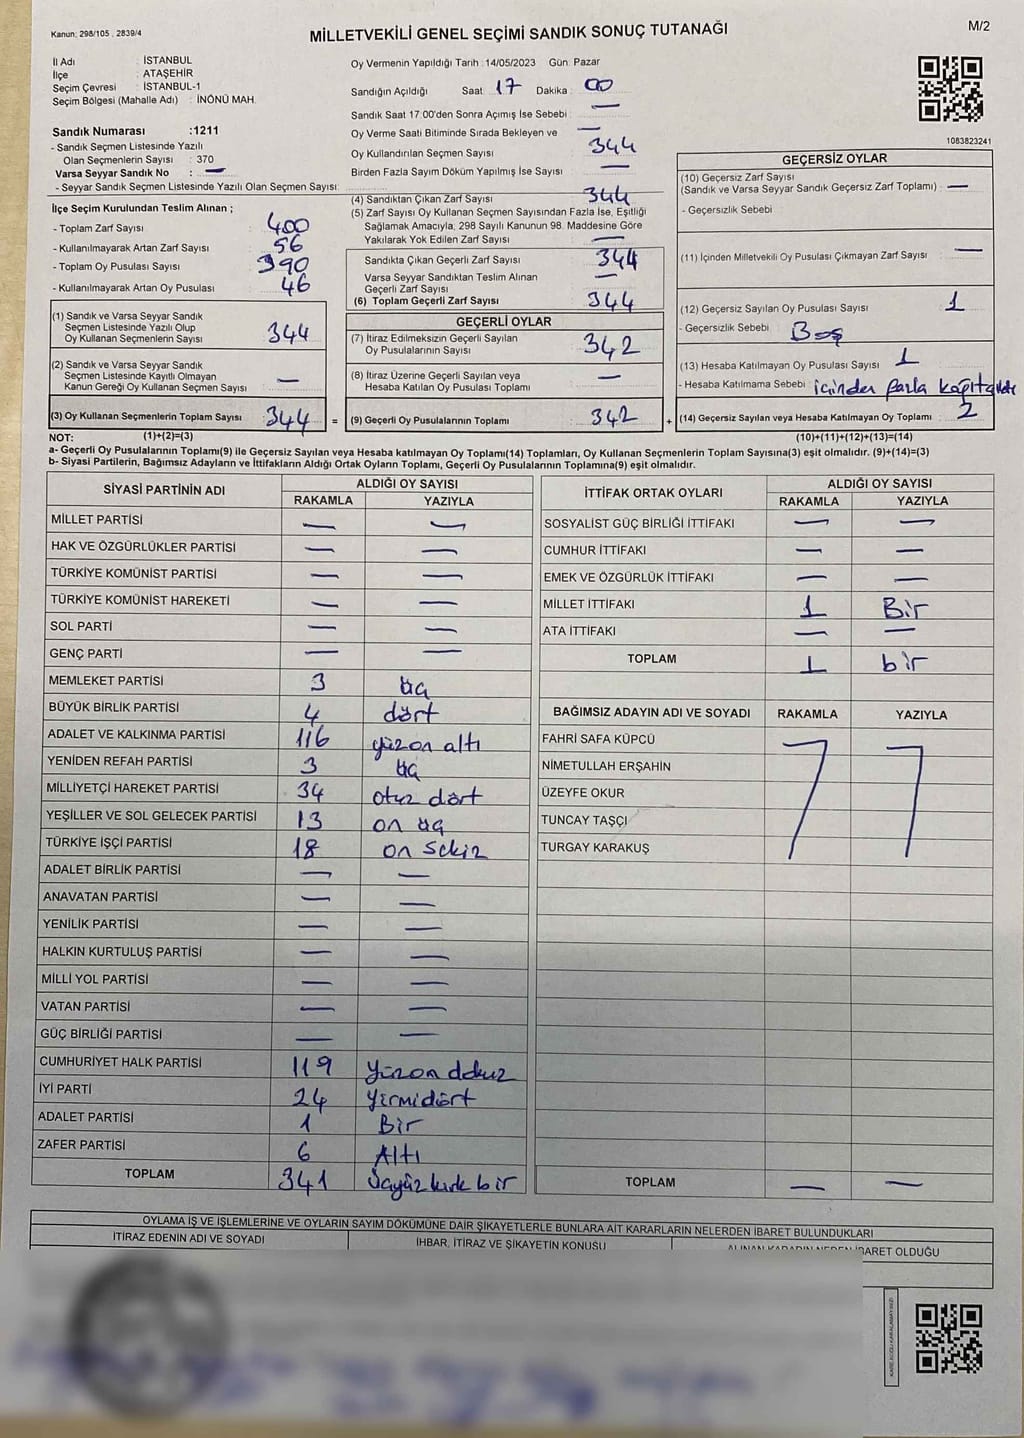 Kanun: 298/105 , 2839/4
MİLLETVEKİLİ GENEL SEÇİMİ SANDIK SONUÇ TUTANAĞI
M/2
İl Adı : İSTANBUL
İlçe : ATAŞEHİR
Seçim Çevresi : İSTANBUL-1
Seçim Bölgesi (Mahalle Adı) : İNÖNÜ MAH.
Sandık Numarası :1211
- Sandık Seçmen Listesinde Yazılı
Olan Seçmenlerin Sayısı : 370
Varsa Seyyar Sandık No : —
- Seyyar Sandık Seçmen Listesinde Yazılı Olan Seçmen Sayısı:
İlçe Seçim Kurulundan Teslim Alınan ;
- Toplam Zarf Sayısı : 400
- Kullanılmayarak Artan Zarf Sayısı : 56
- Toplam Oy Pusulası Sayısı : 390
- Kullanılmayarak Artan Oy Pusulası : 46
(1) Sandık ve Varsa Seyyar Sandık
Seçmen Listesinde Yazılı Olup
Oy Kullanan Seçmenlerin Sayısı : 344
(2) Sandık ve Varsa Seyyar Sandık
Seçmen Listesinde Kayıtlı Olmayan
Kanun Gereği Oy Kullanan Seçmen Sayısı : —
(3) Oy Kullanan Seçmenlerin Toplam Sayısı : 344 =
Oy Vermenin Yapıldığı Tarih :14/05/2023 Gün: Pazar
Sandığın Açıldığı Saat : 17 Dakika : 00
Sandık Saat 17:00'den Sonra Açımış İse Sebebi : —
Oy Verme Saati Bitiminde Sırada Bekleyen ve —
Oy Kullandırılan Seçmen Sayısı : 344
Birden Fazla Sayım Döküm Yapılmış İse Sayısı : —
(4) Sandıktan Çıkan Zarf Sayısı : 344
(5) Zarf Sayısı Oy Kullanan Seçmen Sayısından Fazla İse, Eşitliği
Sağlamak Amacıyla, 298 Sayılı Kanunun 98. Maddesine Göre
Yakılarak Yok Edilen Zarf Sayısı : —
Sandıkta Çıkan Geçerli Zarf Sayısı : 344
Varsa Seyyar Sandıktan Teslim Alınan
Geçerli Zarf Sayısı : —
(6) Toplam Geçerli Zarf Sayısı : 344
GEÇERLİ OYLAR
(7) İtiraz Edilmeksizin Geçerli Sayılan
Oy Pusulalarının Sayısı : 342
(8) İtiraz Üzerine Geçerli Sayılan veya
Hesaba Katılan Oy Pusulası Toplamı : —
(9) Geçerli Oy Pusulalarının Toplamı : 342 +
1083823241
GEÇERSİZ OYLAR
(10) Geçersiz Zarf Sayısı
(Sandık ve Varsa Seyyar Sandık Geçersiz Zarf Toplamı) : —
- Geçersizlik Sebebi :
(11) İçinden Milletvekili Oy Pusulası Çıkmayan Zarf Sayısı : —
(12) Geçersiz Sayılan Oy Pusulası Sayısı : 1
- Geçersizlik Sebebi : Boş
(13) Hesaba Katılmayan Oy Pusulası Sayısı : 1
- Hesaba Katılmama Sebebi : içinden fazla
(14) Geçersiz Sayılan veya Hesaba Katılmayan Oy Toplamı : 2
NOT: (1)+(2)=(3) (10)+(11)+(12)+(13)=(14)
a- Geçerli Oy Pusulasının Toplamı(9) ile Geçersiz Sayılan veya Hesaba katılmayan Oy Toplamı(14) Toplamları, Oy Kullanan Seçmenlerin Toplam Sayısına(3) eşit olmalıdır. (9)+(14)=(3)
b- Siyasi Partilerin, Bağımsız Adayların ve İttifakların Aldığı Ortak Oyların Toplamı, Geçerli Oy Pusulalarının Toplamına(9) eşit olmalıdır.
SİYASİ PARTİNİN ADI ALDIĞI OY SAYISI
RAKAMLA YAZIYLA
MİLLET PARTİSİ — —
HAK VE ÖZGÜRLÜKLER PARTİSİ — —
TÜRKİYE KOMÜNİST PARTİSİ — —
TÜRKİYE KOMÜNİST HAREKETİ — —
SOL PARTİ — —
GENÇ PARTİ — —
MEMLEKET PARTİSİ 3 üç
BÜYÜK BİRLİK PARTİSİ 4 dört
ADALET VE KALKINMA PARTİSİ 116 yüzon altı
YENİDEN REFAH PARTİSİ 3 üç
MİLLİYETÇİ HAREKET PARTİSİ 34 otuz dört
YEŞİLLER VE SOL GELECEK PARTİSİ 13 on üç
TÜRKİYE İŞÇİ PARTİSİ 18 on sekiz
ADALET BİRLİK PARTİSİ — —
ANAVATAN PARTİSİ — —
YENİLİK PARTİSİ — —
HALKIN KURTULUŞ PARTİSİ — —
MİLLİ YOL PARTİSİ — —
VATAN PARTİSİ — —
GÜÇ BİRLİĞİ PARTİSİ — —
CUMHURİYET HALK PARTİSİ 119 yüzon dokuz
İYİ PARTİ 24 yirmidört
ADALET PARTİSİ 1 Bir
ZAFER PARTİSİ 6 Altı
TOPLAM 341 üçyüz kırk bir
İTTİFAK ORTAK OYLARI ALDIĞI OY SAYISI
RAKAMLA YAZIYLA
SOSYALİST GÜÇ BİRLİĞİ İTTİFAKI — —
CUMHUR İTTİFAKI — —
EMEK VE ÖZGÜRLÜK İTTİFAKI — —
MİLLET İTTİFAKI 1 Bir
ATA İTTİFAKI — —
TOPLAM 1 bir
BAĞIMSIZ ADAYIN ADI VE SOYADI RAKAMLA YAZIYLA
FAHRİ SAFA KÜPCÜ
NİMETULLAH ERŞAHİN
ÜZEYFE OKUR
TUNCAY TAŞÇI
TURGAY KARAKUŞ
TOPLAM — —
OYLAMA İŞ VE İŞLEMLERİNE VE OYLARIN SAYIM DÖKÜMÜNE DAİR ŞİKAYETLERLE BUNLARA AİT KARARLARIN NELERDEN İBARET BULUNDUKLARI
İTİRAZ EDENİN ADI VE SOYADI İHBAR, İTİRAZ VE ŞİKAYETİN KONUSU ALINAN KARARIN NEDEN İBARET OLDUĞU